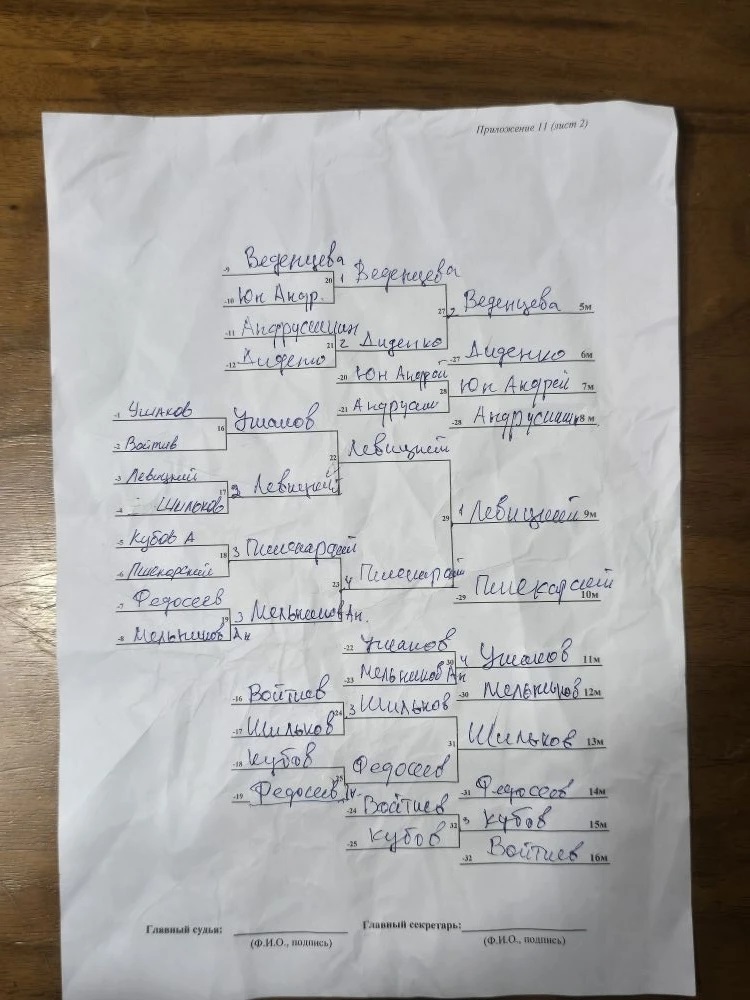 Приложение 11 (лист 2)
-9 Веденцева
20 1 Веденцева
-10 Юн Андр.
27 Веденцева 5м
-11 Андрусишин
21 2 Диденко
-12 Диденко
-27 Диденко 6м
-20 Юн Андрей
28 Юн Андрей 7м
-21 Андрусиш
-28 Андрусишин 8м
-1 Ушаков
16 Ушаков
-2 Войтив
22 Левицкий
-3 Левицкий
17 Левицкий
-4 Шильков
29 1 Левицкий 9м
-5 Кубов А
18 3 Пшекарский
-6 Пшекарский
23 4 Пшекарский
-29 Пшекарский 10м
-7 Федосеев
19 3 Мельников Ан.
-8 Мельников Ан
-22 Ушаков
30 4 Ушаков 11м
-23 Мельников Ан
-30 Мельников 12м
-16 Войтиев
24 3 Шильков
-17 Шильков
31 Шильков 13м
-18 Кубов
25 Федосеев
-19 Федосеев
-31 Федосеев 14м
-24 Войтиев
32 Кубов 15м
-25 Кубов
-32 Войтиев 16м
Главный судья: Главный секретарь:
(Ф.И.О., подпись) (Ф.И.О., подпись)